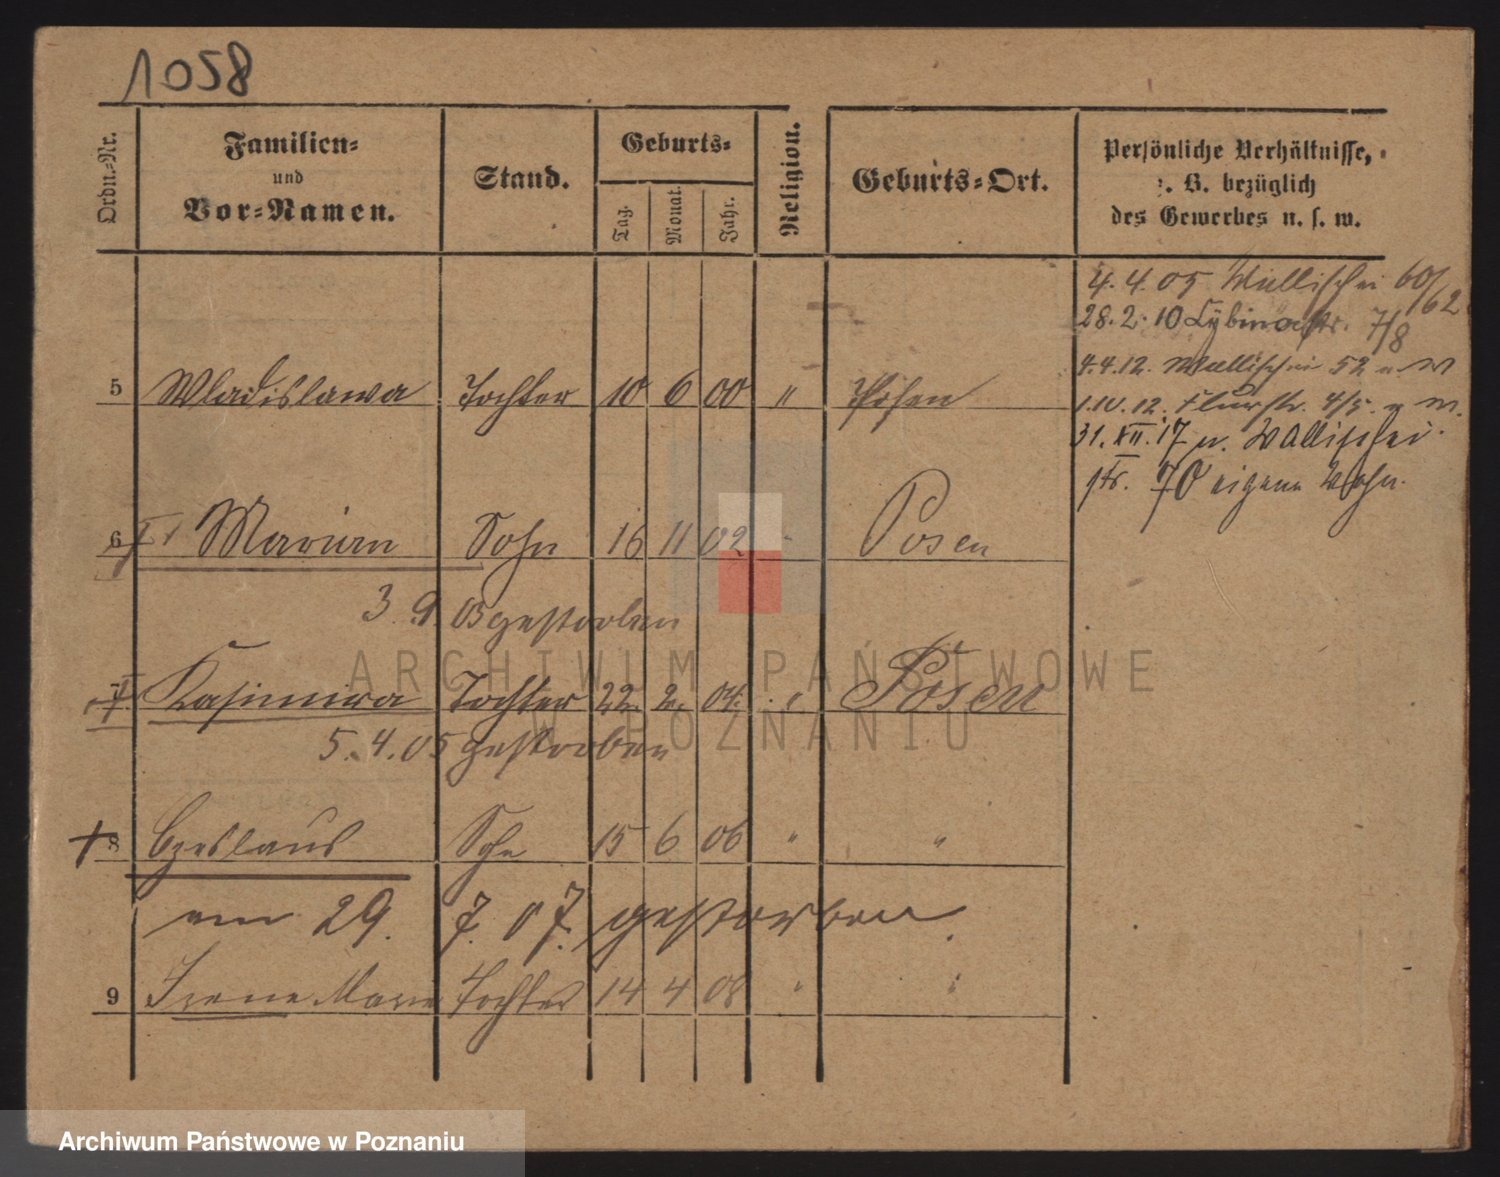 1058
Ordn.-Nr. Familien- und Vor-Namen. Stand. Geburts- Tag. Monat. Jahr. Religion. Geburts-Ort. Persönliche Verhältnisse, z. B. bezüglich des Gewerbes u. s. w.
4. 4. 05 Wallischei 60/62
28. 2. 10 Cybinastr. 7/8
4. 4. 12. Wallischei 52 u. W
5 Wladislawa Tochter 10 6 00 " Posen
1. IV. 12. Flurstr. 4/5. u W.
31. XII. 17 u. Wallischei
str. 70 eigene Wohn.
6 Marian Sohn 16 11 02 " Posen
3. 9. 03 gestorben
Kasimira Tochter 22. 2. 04. " Posen
5. 4. 05 gestorben
8 Czeslaus Sohn 15 6 06 " "
am 29. 7. 07. gestorben.
9 Irene Marie Tochter 14 4 08 " "
ARCHIWUM PAŃSTWOWE
W POZNANIU
Archiwum Państwowe w Poznaniu